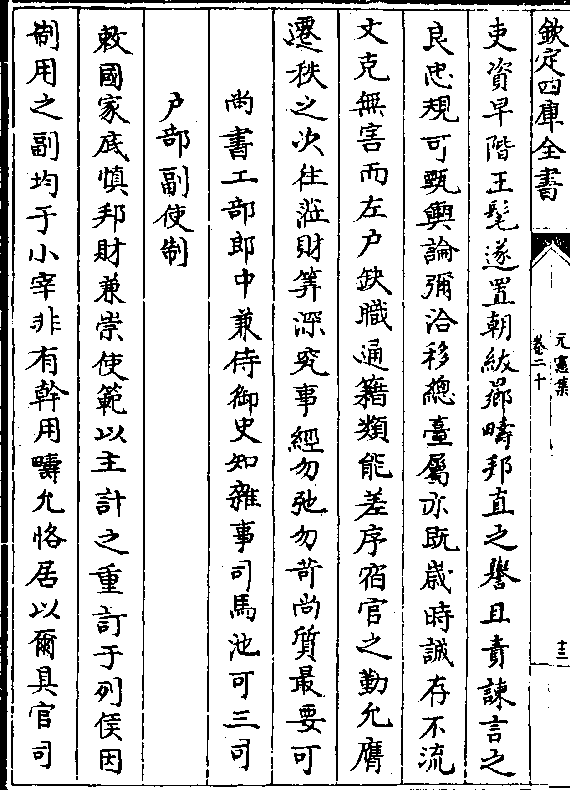 欽定四庫全書
元憲集
卷二十
十三
吏資早階王髦遂置朝紱鄙疇邦直之譽且責諫言之
良忠規可甄輿論彌洽移總臺屬亦既歲時誠存不流
文克無害而左户缺職通籍類能差序宿官之勤允膺
遷秩之次往莅財筭深究事經勿弛勿苛尚質最要可
尚書工部郎中兼侍御史知雜事司馬池可三司
户部副使制
敕國家底慎邦財兼崇使範以主計之重訂于列侯因
制用之副均于小宰非有幹用疇允恪居以爾具官司